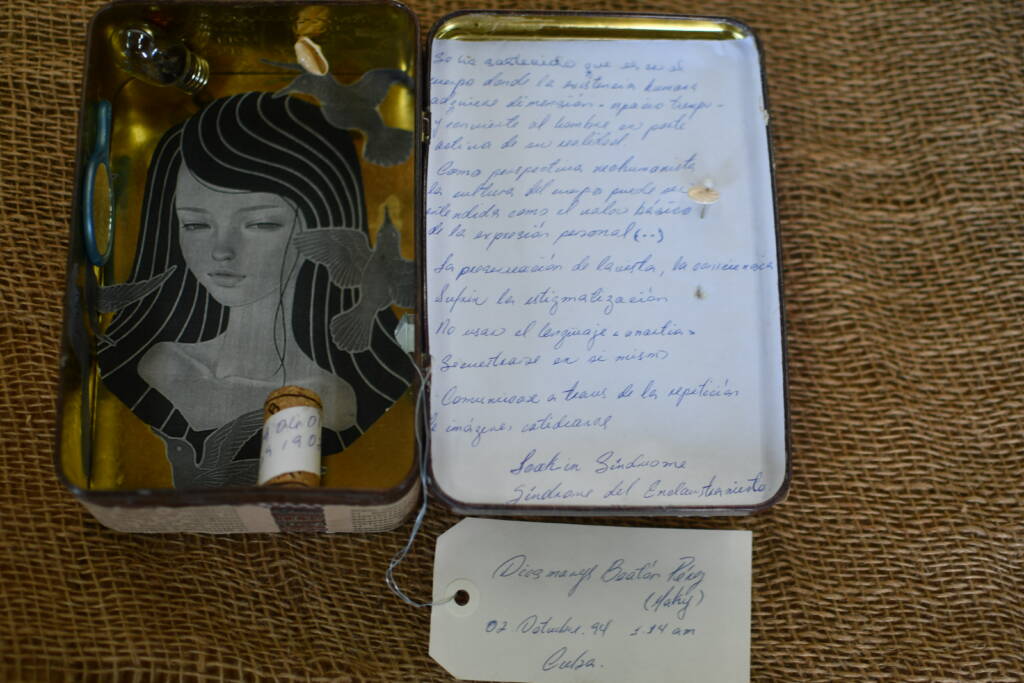 que es en el
cuerpo donde la existencia humana
adquiere dimensión - espacio tiempo -
y convierte al hombre en parte
activa de su realidad.
Como perspectiva neohumanista
la cultura del cuerpo puede ser
entendida como el valor básico
de la expresión personal (..)
La preservación de la vista, la conciencia
Sufrir la estigmatización
No usar el lenguaje
Secuestrarse en si mismo
Comunicarse a traves de la repetición
de imágenes cotidianas
Síndrome
Síndrome del Enclaustramiento
Pérez
(Maky)
02 Octubre. 94 1.14 am
Cuba.